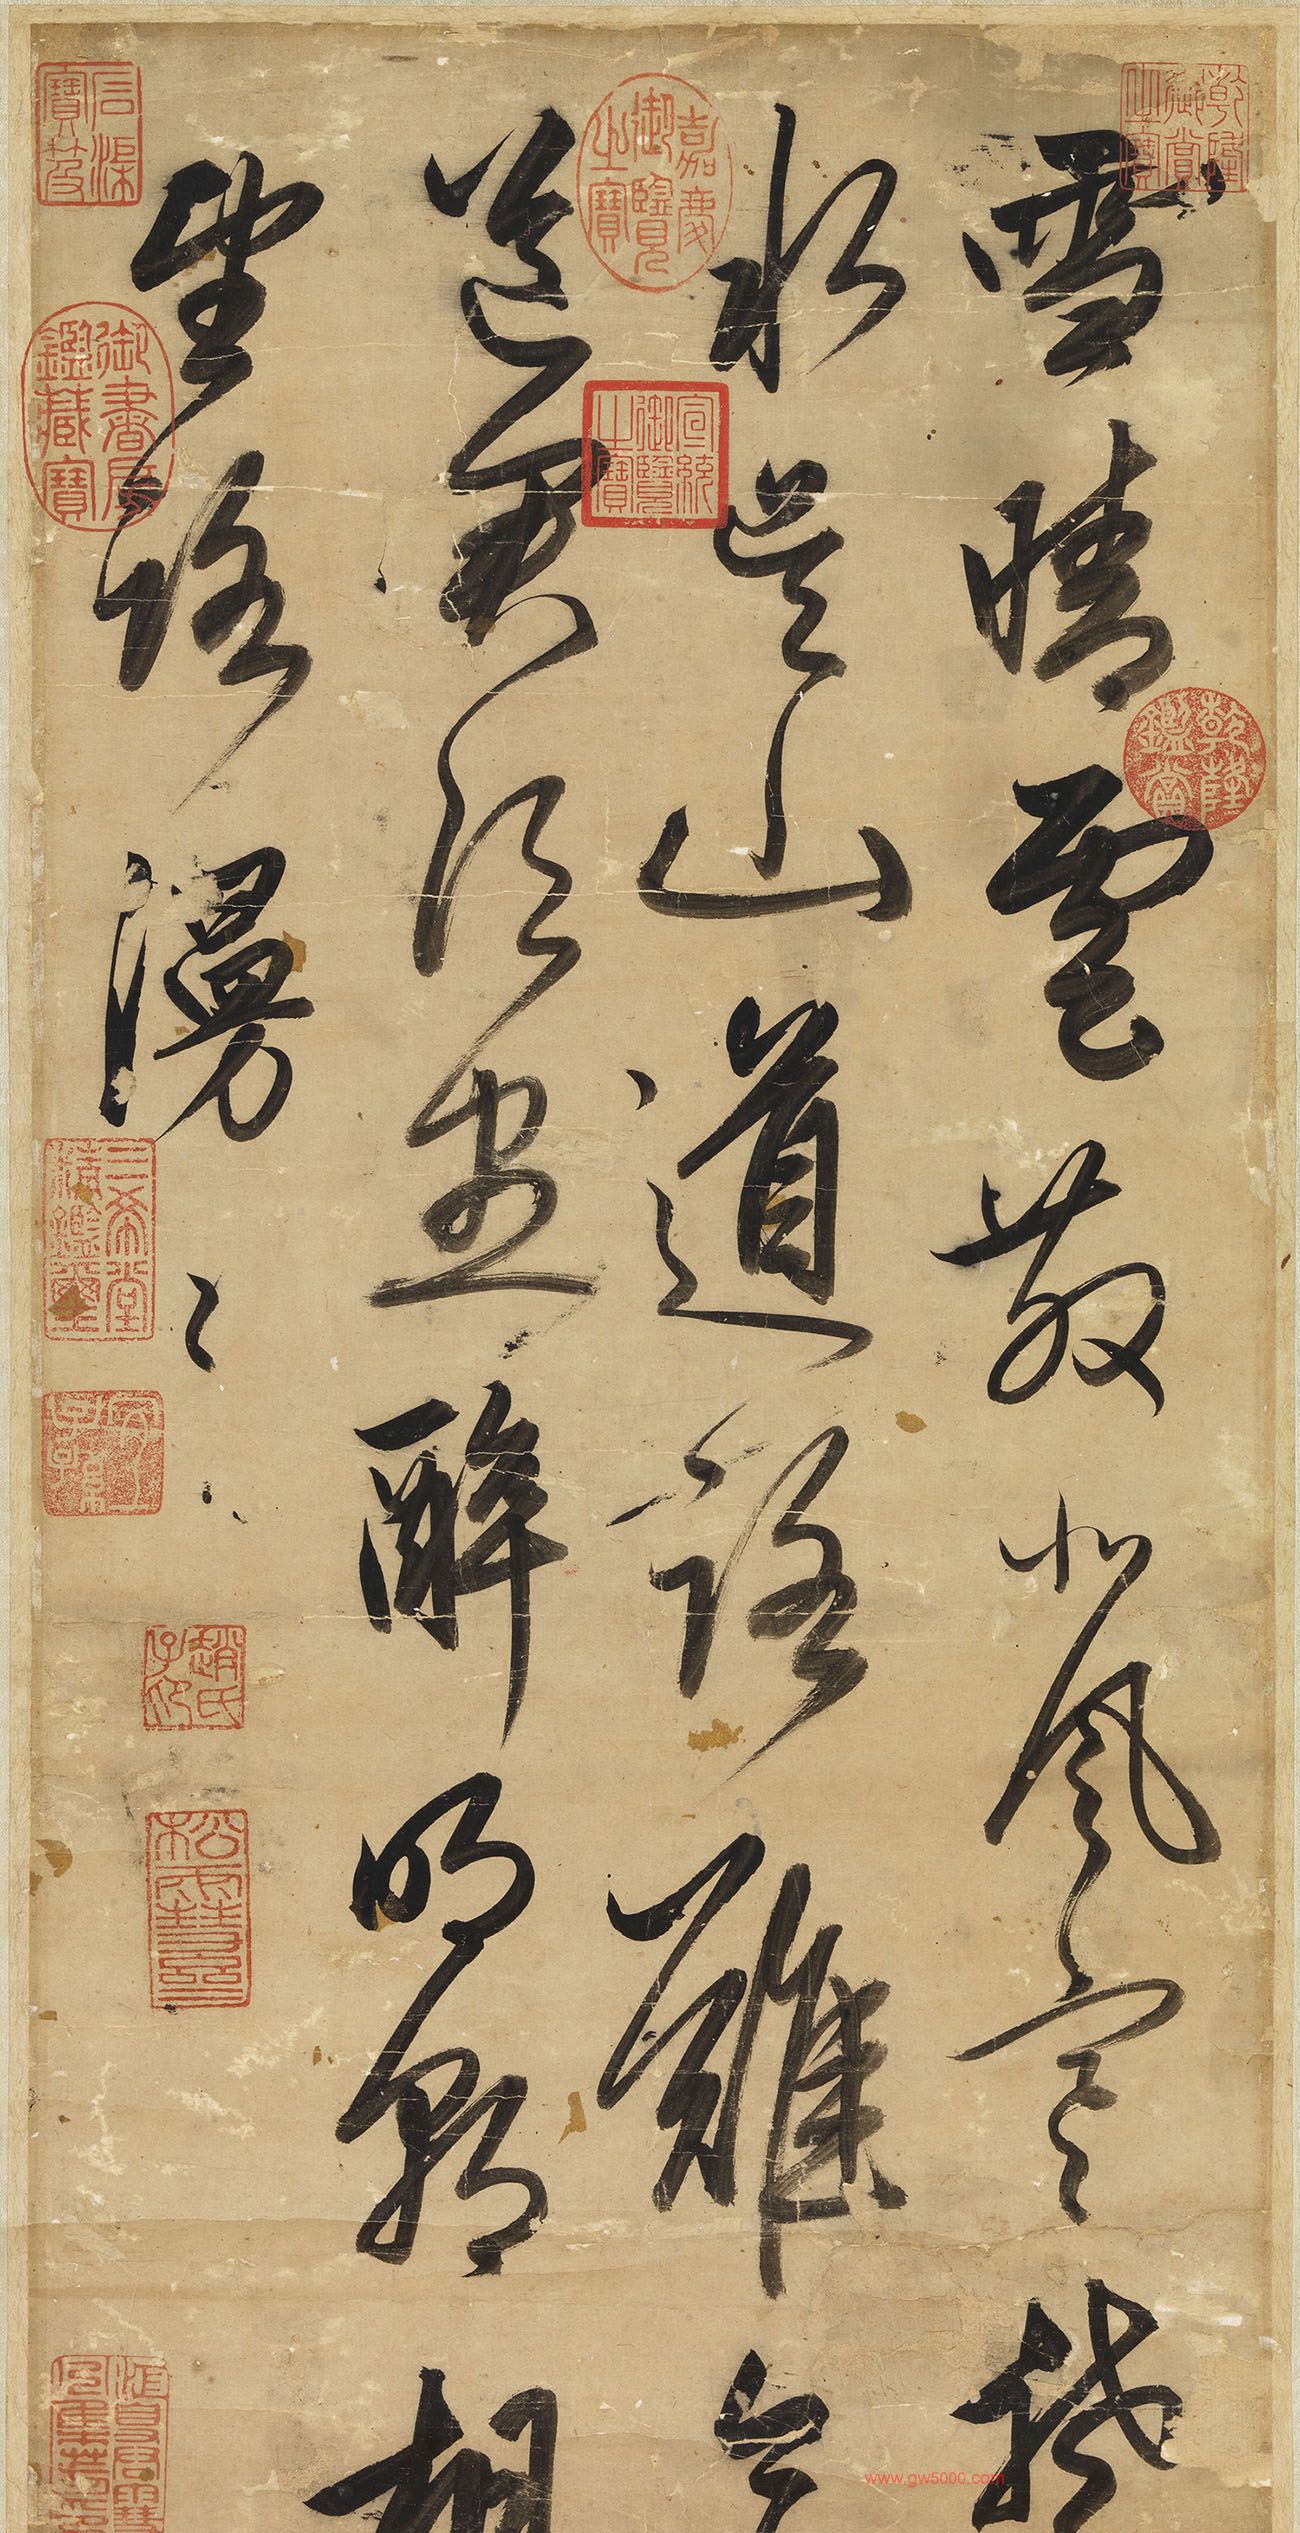 雪晴雲散北風寒楚
水吳山道路難今
送君須盡醉明朝相
望路漫〻
乾隆御賞之寶
乾隆鑑賞
嘉慶御覽之寶
宣統御覽之寶
石渠寶笈
御書房鑑藏寶
三希堂精鑑璽
趙氏子昂
松雪齋
www.gw5000.com